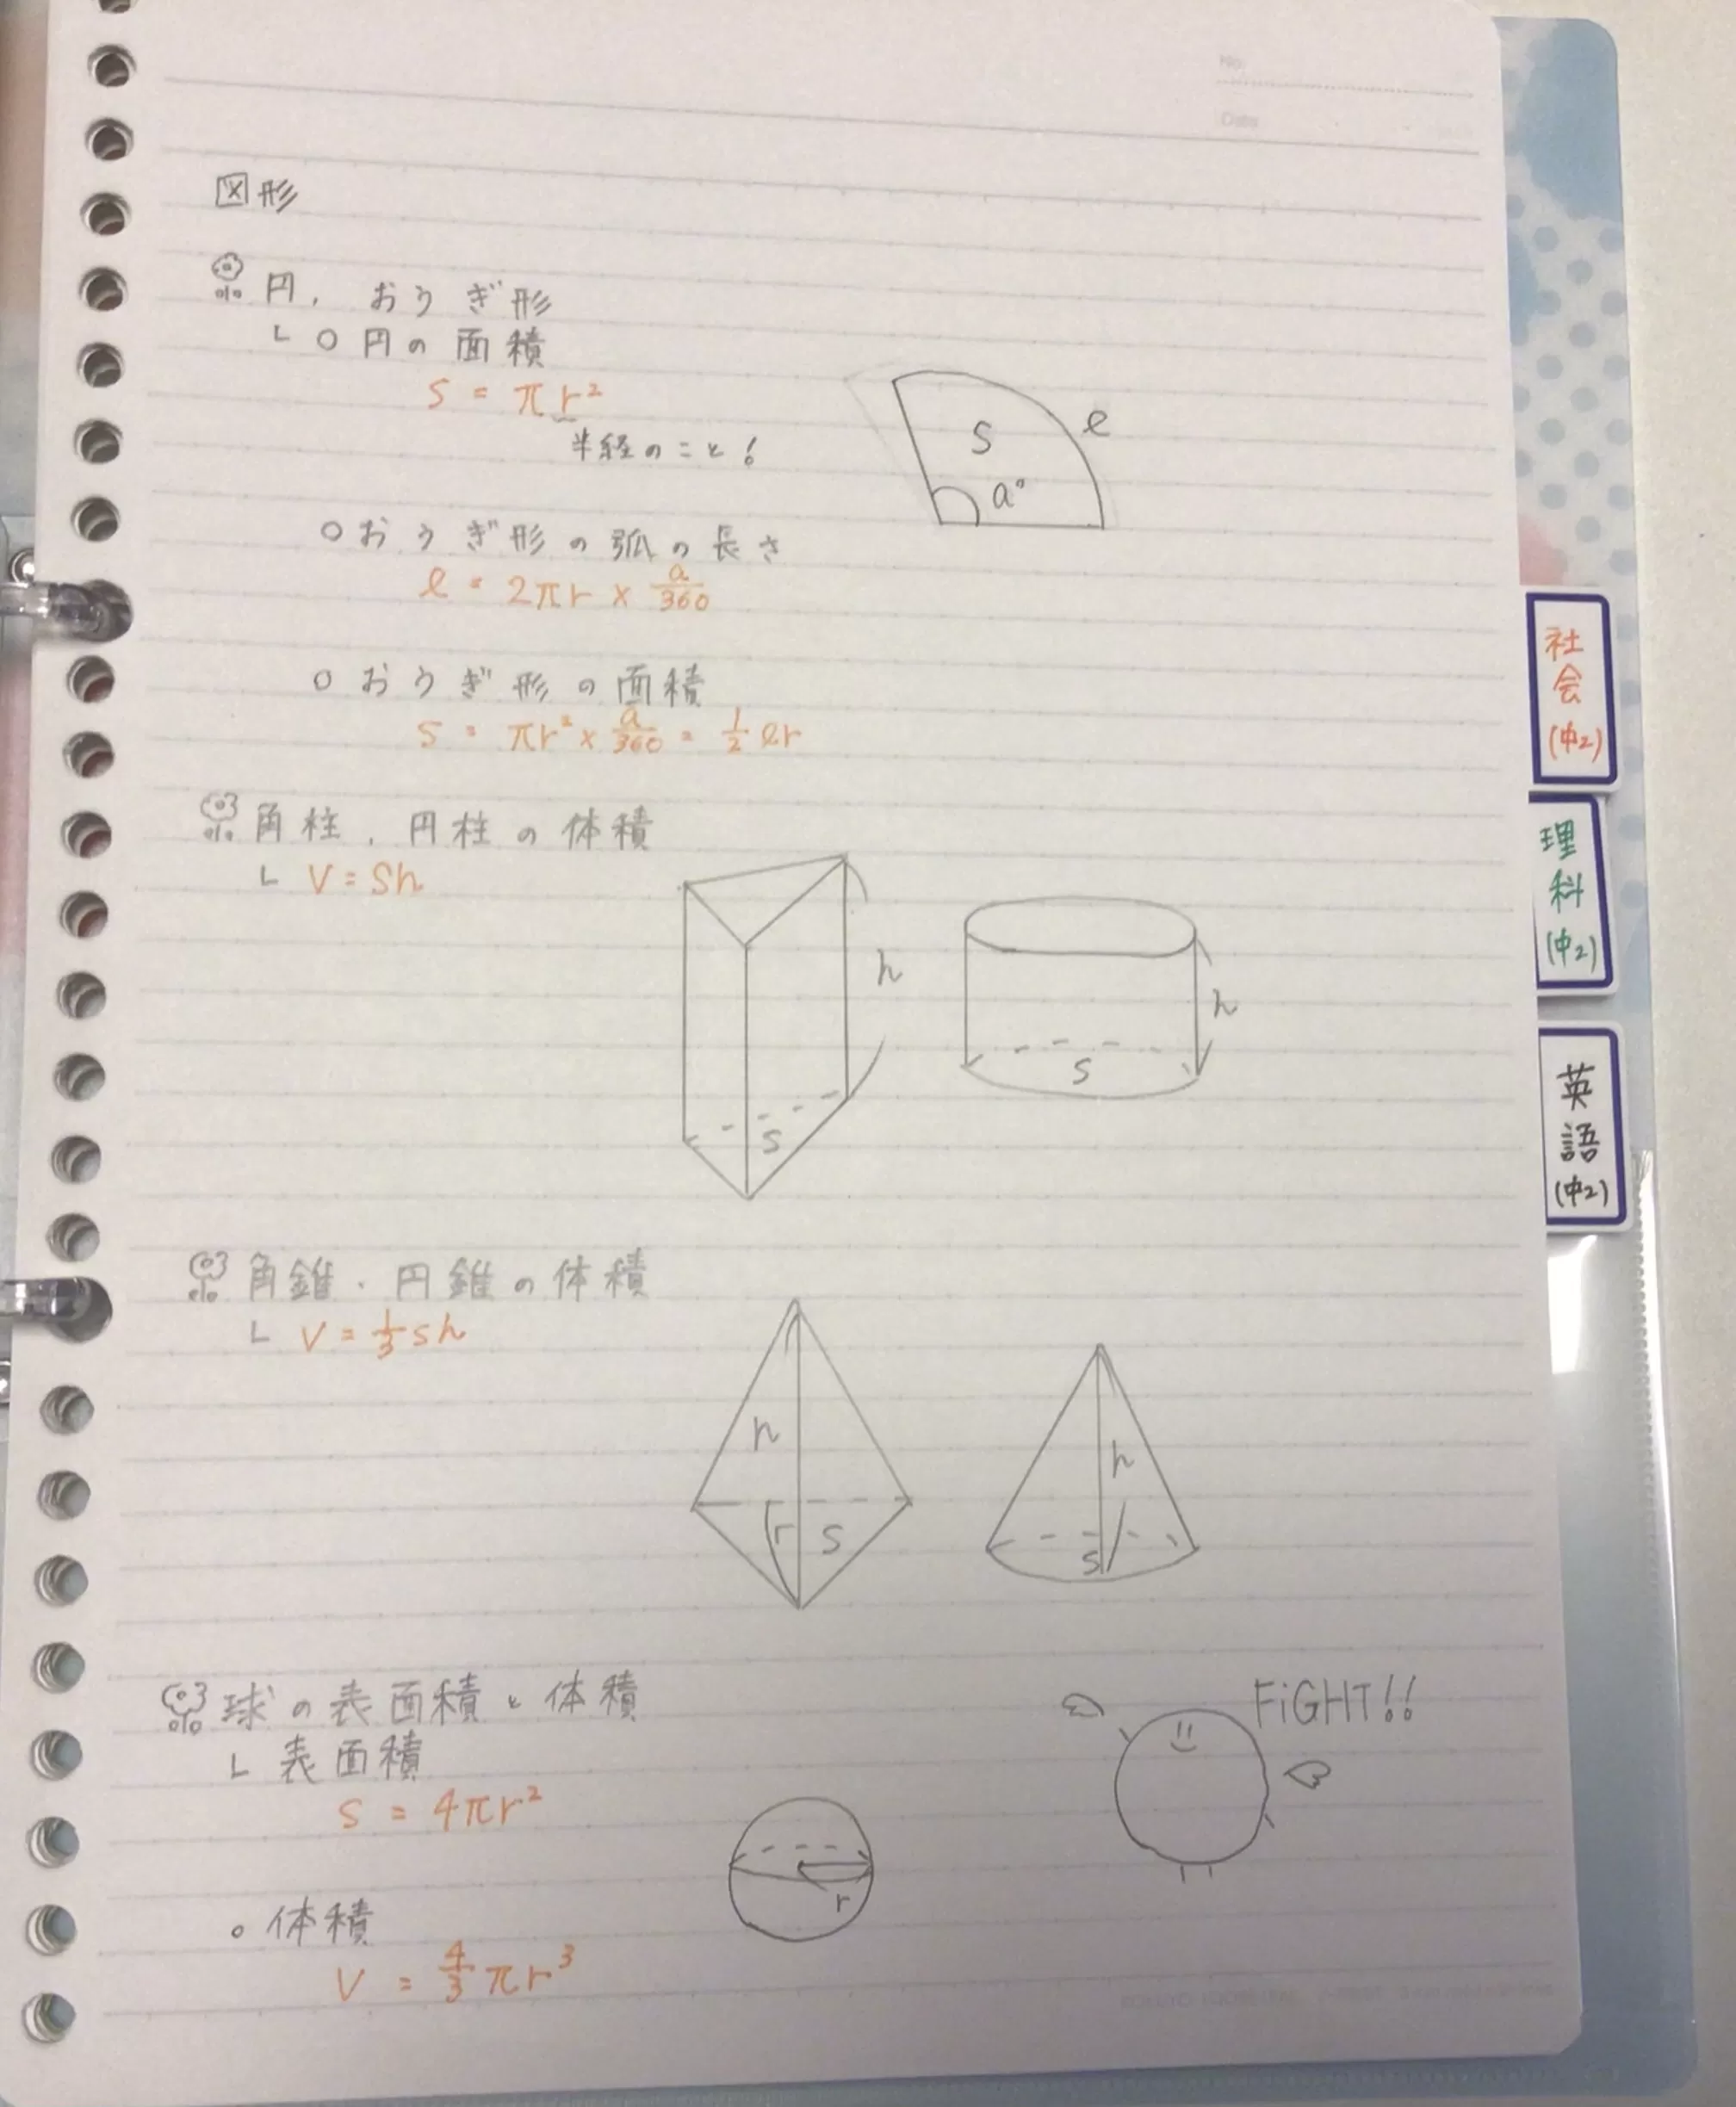 No.
Date
図形
円, おうぎ形
└ ○円の面積
S = πr²
半経のこと!
S
l
a°
○おうぎ形の弧の長さ
l = 2πr × a/360
○おうぎ形の面積
S = πr² × a/360 = 1/2 lr
角柱, 円柱の体積
└ V = Sh
h
S
h
S
角錐・円錐の体積
└ V = 1/3 Sh
h
r
S
h
S
球の表面積と体積
└ 表面積
S = 4πr²
r
FiGHT!!
○体積
V = 4/3 πr³
社会(中2)
理科(中2)
英語(中2)